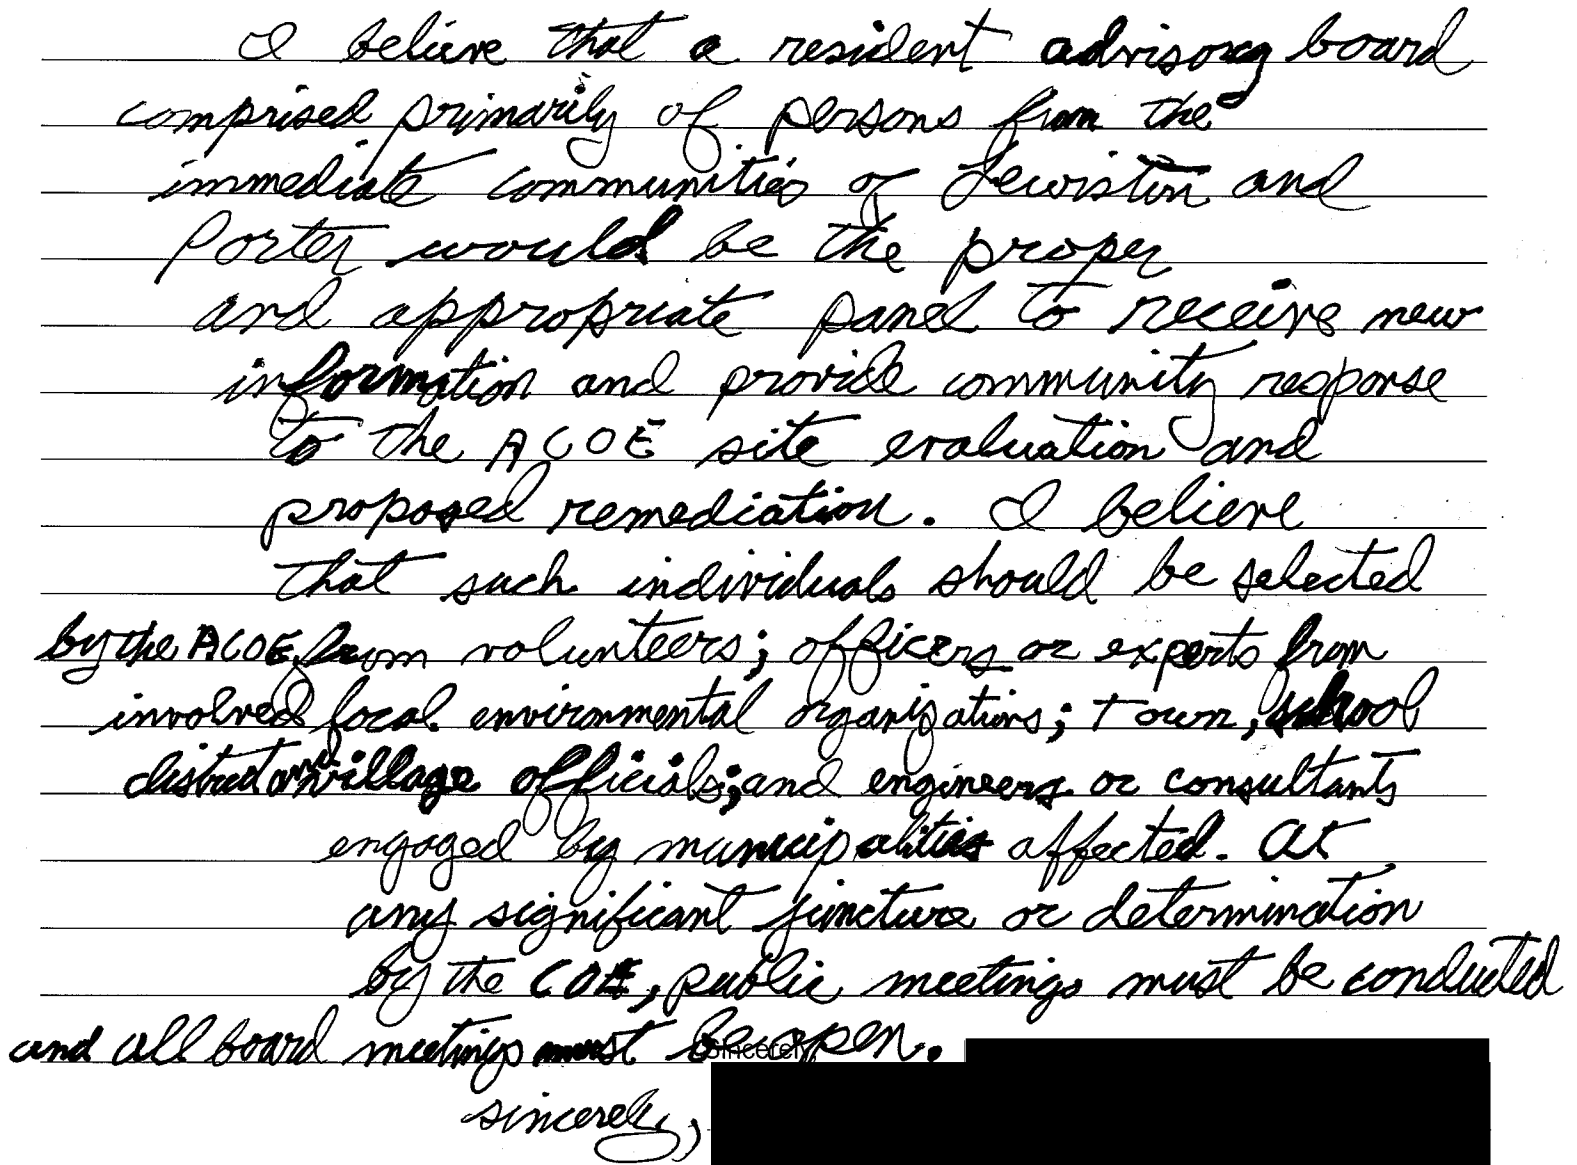 I believe that a resident advisory board
comprised primarily of persons from the
immediate communities of Lewiston and
Porter would be the proper
and appropriate panel to receive new
information and provide community response
to the ACOE site evaluation and
proposed remediation. I believe
that such individuals should be selected
by the ACOE from volunteers; officers or experts from
involved local environmental organizations; town, school
district and village officials; and engineers or consultants
engaged by municipalities affected. At
any significant juncture or determination
by the COE, public meetings must be conducted
and all board meetings must be open.
Sincerely,
sincerely,